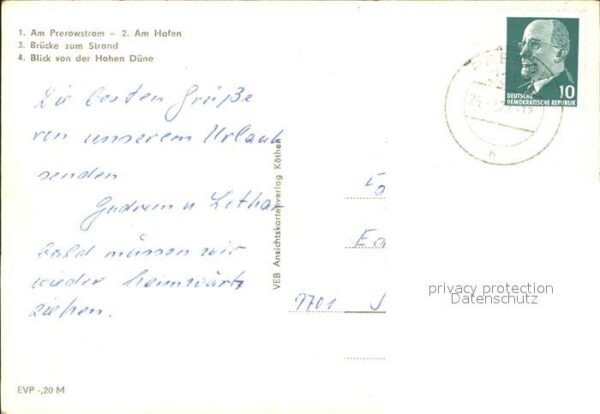 1. Am Prerowstrom – 2. Am Hafen
3. Brücke zum Strand
4. Blick von der Hohen Düne
10
DEUTSCHE
DEMOKRATISCHE REPUBLIK
Die besten Grüße
von unserem Urlaub
senden
Gudrun u. Lothar
bald müssen wir
wieder heimwärts
ziehen.
VEB Ansichtskartenverlag Köthen
7701
privacy protection
Datenschutz
EVP -,20 M